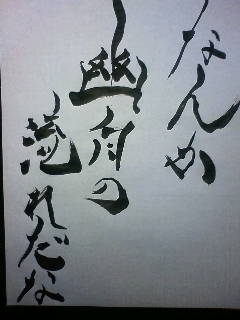 なんか
幽白の
流れだな